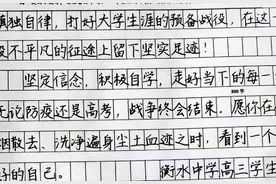 慎独自律，打好大学生涯的预备战役，在这
段不平凡的征途上留下坚实足迹！
坚定信念，积极自学，走好当下的每一
800字
无论防疫还是高考，战争终会结束。愿你在
烟散去、洗净遍身尘土血迹之时，看到一个
好的自己。
衡水中学高三学生